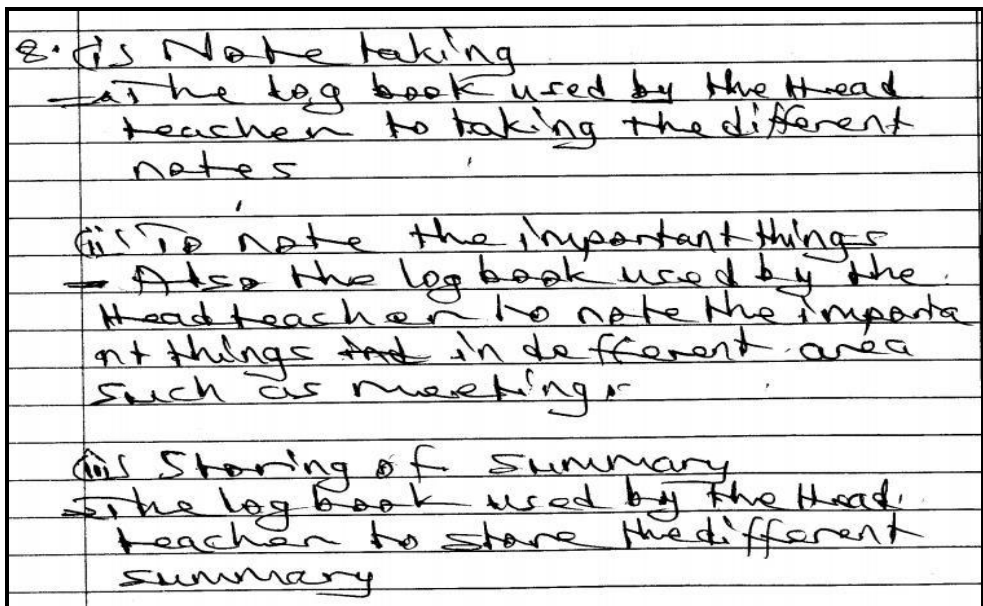 8. (i) Note taking
- The log book used by the Head
teacher to taking the different
notes
(ii) To note the important things
- Also the log book used by the
Head teacher to note the importa
nt things in defferent area
such as meeting.
(iii) Storing of summary
- The log book used by the Head
teacher to store the different
summary